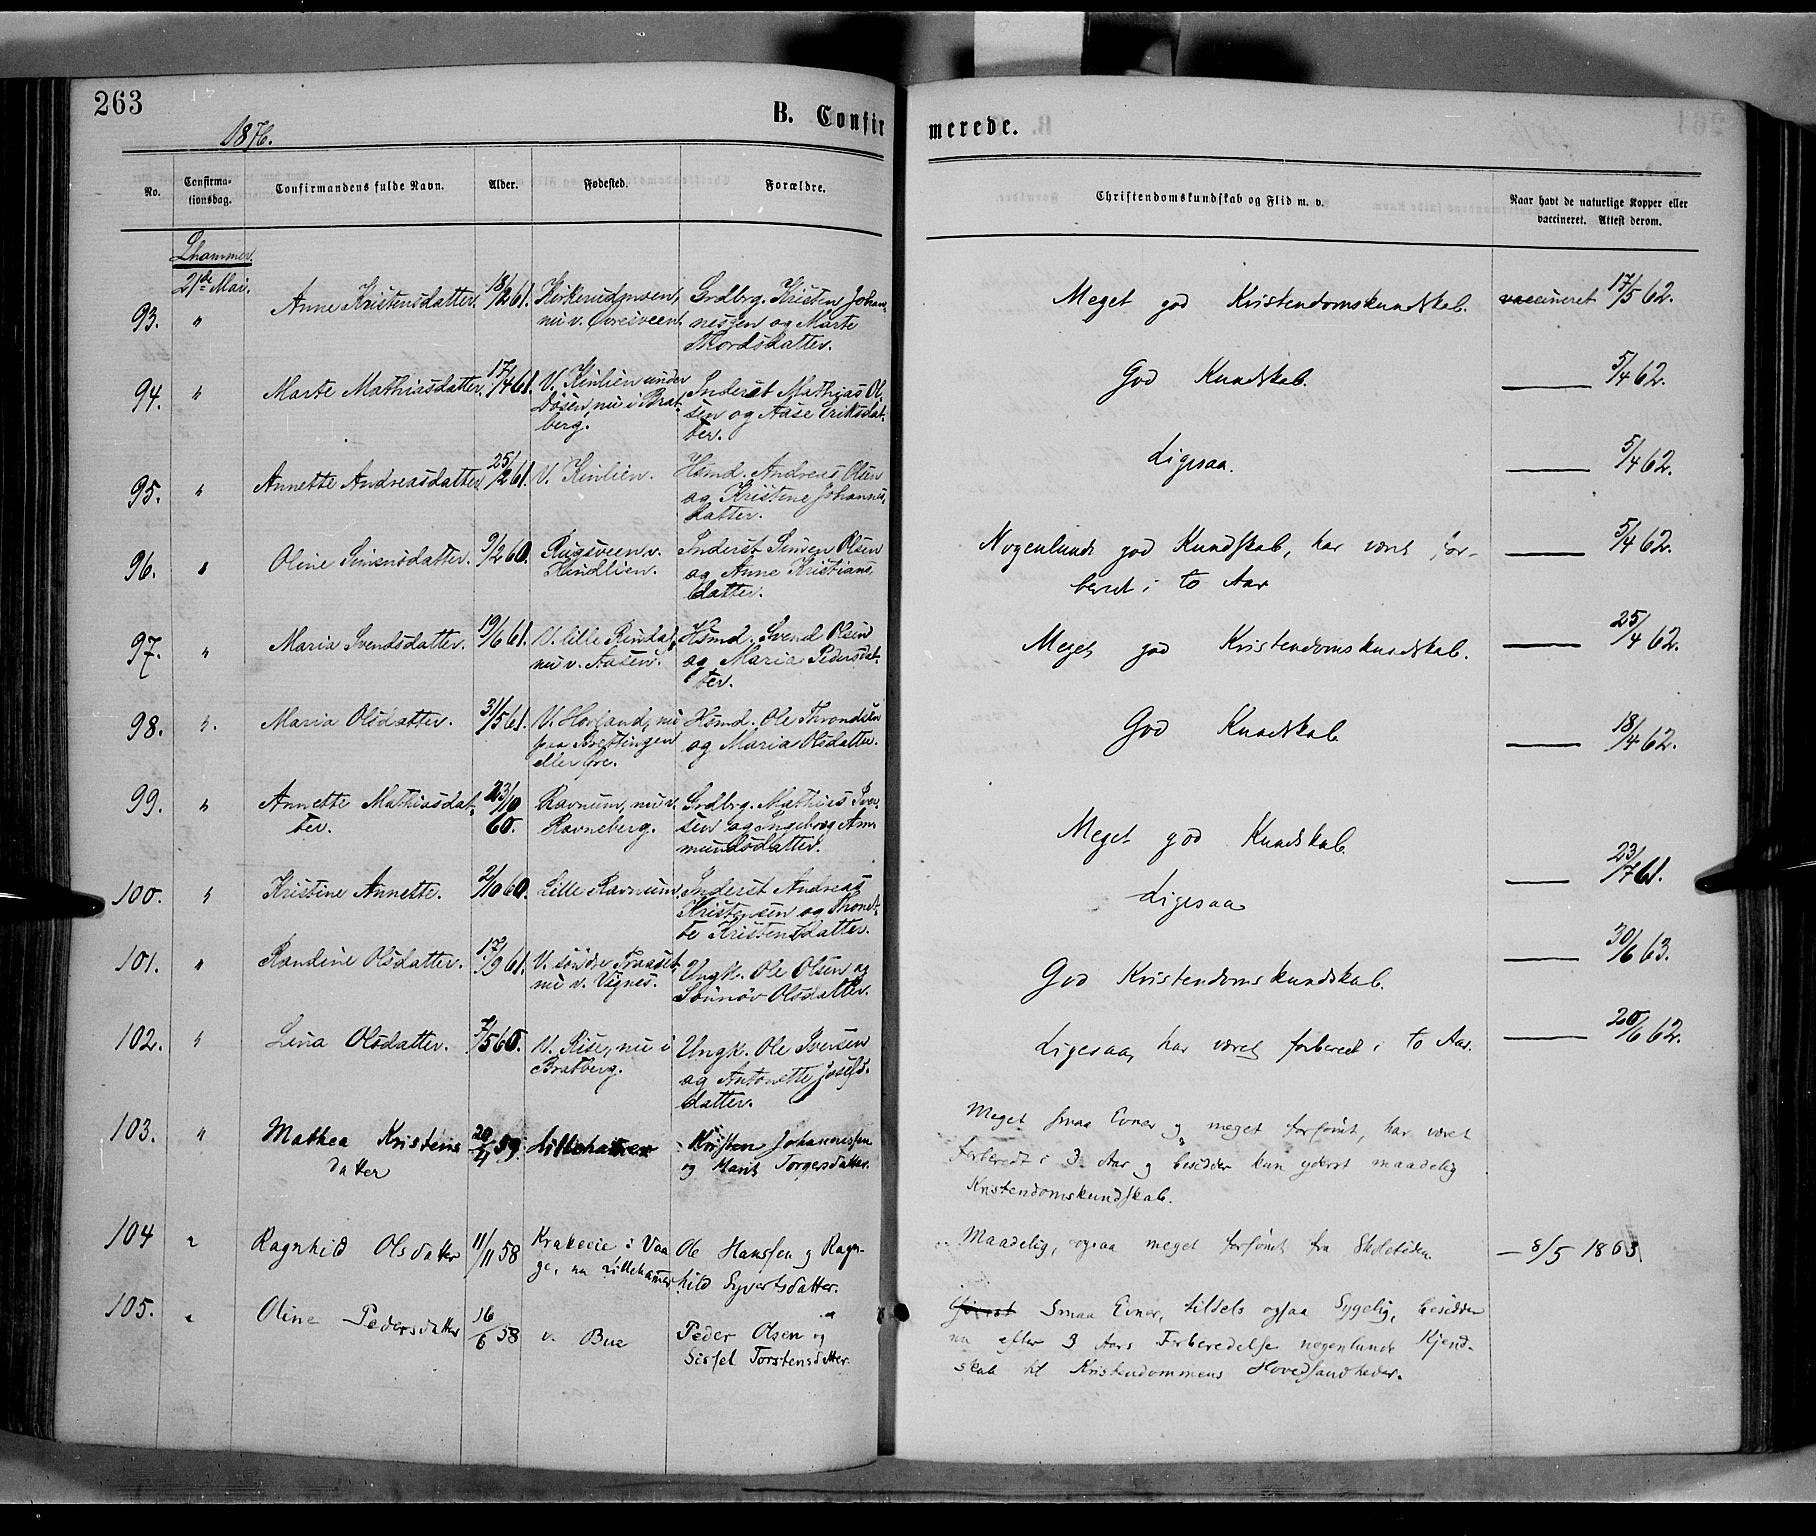 263
1876.
B. Confirmerede.
No. Confirmationsdag. Confirmandens fulde Navn. Alder. Fødested. Forældre. Christendomskundskab og Flid m. v. Naar havt de naturlige Kopper eller vaccineret. Attest derom.
Lhammer.
21de Mai.
93. " Anne Kristensdatter. 18/2 61. Kirkerudgveen, Grdbrg. Kristen Johan- Meget god Kristendomskundskab. vaccineret 17/5 62.
nu v. Øvresveen. nessen og Marte
Thordsdatter.
94. " Marte Mathiasdatter. 17/4 61. V. Kinlien under Inderst Mathias Ol- God Kundskab. — 5/4 62.
Døsen, nu i Brat- sen og Aase Eriksdat-
berg. ter.
95. " Annette Andreasdatter. 25/2 61. V. Kinlien. Hsmd. Andreas Olsen Ligesaa. — 5/4 62.
og Kristine Johannes-
datter.
96. " Oline Simensdatter. 9/2 60. Rugsveen v. Inderst Simen Olsen Nogenlunde god Kundskab, har været for- — 5/4 62.
Kindlien. og Anne Kristians- beredt i to Aar
datter.
97. " Maria Svendsdatter. 19/6 61. V. lille Rindal, Hsmd. Svend Olsen Meget god Kristendomskundskab. — 25/4 62.
nu v. Aasen. og Maria Pedersdat-
ter.
98. " Maria Olsdatter. 31/5 61. V. Hovland, nu Hsmd. Ole Throndsen God Kundskab — 18/4 62.
paa Brettingen og Maria Olsdatter.
eller Øre.
99. " Annette Mathiasdat- 23/10 Ravnum, nu v. Grdbrg. Mathias Iver- Meget god Kundskab.
ter. 60. Ravneberg. sen og Ingebreg Am-
mundsdatter.
100. " Kristine Annette. 2/10 60. Lille Ravnum. Inderst Andreas Ligesaa — 23/7 61.
Kristensen og Thond-
te Kristensdatter.
101. " Randine Olsdatter. 17/9 61. V. søndre Traaset, Ungk. Ole Olsen og God Kristendomskundskab. — 30/6 63.
nu v. Vignes. Sønnøv Olsdatter.
102. " Lina Olsdatter. 7/5 60. V. Rise, nu i Ungk. Ole Iversen Ligesaa, har været forberedt i to Aar. — 20/6 62.
Bratberg. og Antonette Josefs-
datter.
103. " Mathea Kristens 20/4 59. Lillehammer Kristen Johannessen Meget smaa Evner og meget forsømt, har været
datter og Marit Torgersdatter. forberedt i 3 Aar og besidder kun yderst maadelig
Kristendomskundskab.
104 " Ragnhild Olsdatter 11/11 58 Krakeeie i Vaa Ole Hanssen og Ragn- Maadelig, ogsaa meget forsømt fra Skoletiden — 8/5 1863
ge, nu Lillehamer hild Syvertsdatter.
105. " Oline Pedersdatter 16/6 58 v. Bue Peder Olsen og Smaa Evner, tildels ogsaa Sygelig, besidder
Sissel Torstensdatter. nu efter 3 Aars Forberedelse nogenlunde Kjend-
skab til Kristendommens Hovedsandheder.